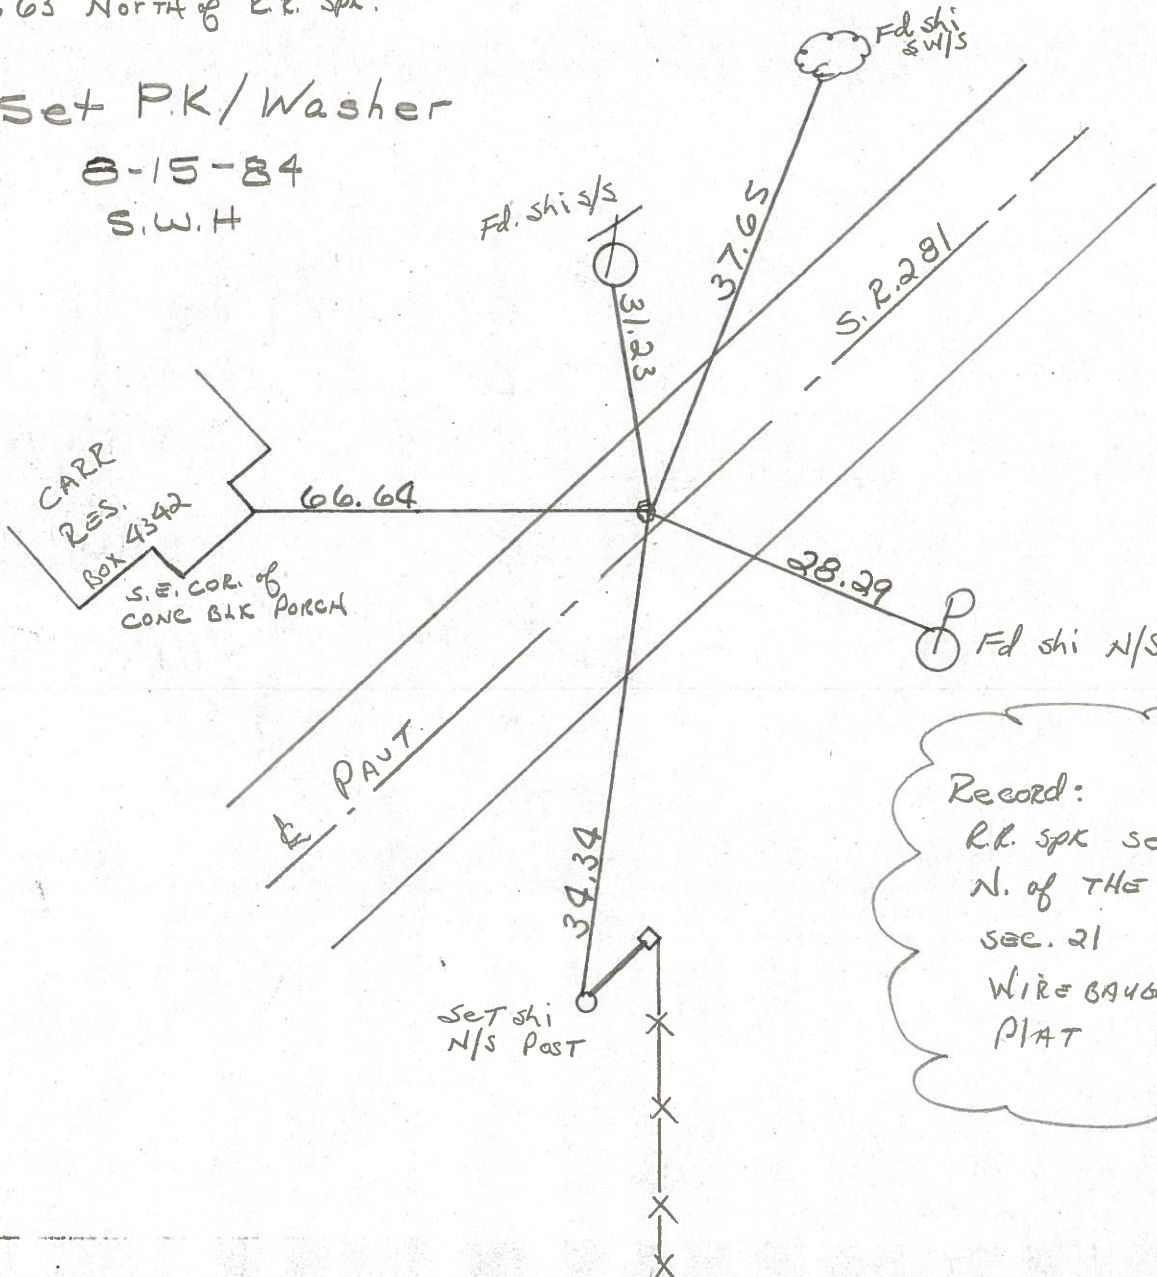 .63 NORTH of R.R. SPK.
Set P.K/Washer
8-15-84
S.W.H
Fd shi
SW/S
Fd. shi s/s
37.65
31.23
S.R.281
CARR
RES.
BOX 4342
66.64
S.E. COR. of
CONC BLK PORCH
28.29
Fd shi N/S
℄ PAVT.
34.34
SET shi
N/S POST
Record:
R.R. SPK
N. of THE
SEC. 21
PlAT